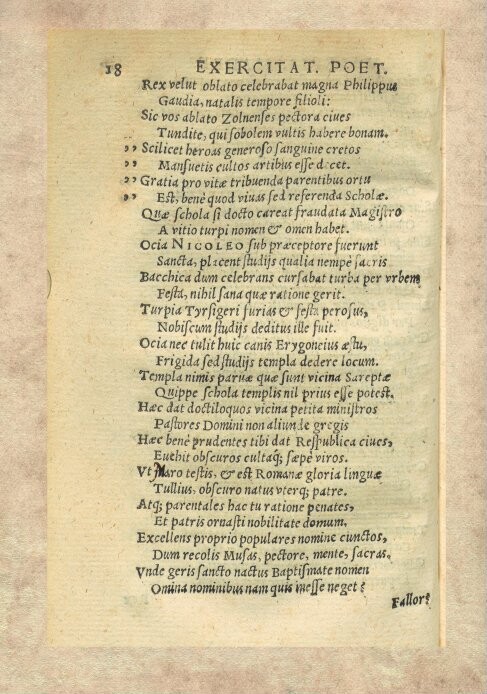 18 EXERCITAT. POET.
Rex velut oblato celebrabat magna Philippus
Gaudia, natalis tempore filioli:
Sic vos ablato Zolnenses pectora ciues
Tundite, qui sobolem vultis habere bonam.
,, Scilicet heroas generoso sanguine cretos
Mansuetis cultos artibus esse decet.
,, Gratia pro vitæ tribuenda parentibus ortu
,, Est, benè quod viuas sed referenda Scholæ.
Quæ schola si docto careat fraudata Magistro
A vitio turpi nomen & omen habet.
Ocia NICOLEO sub præceptore fuerunt
Sancta, placent studijs qualia nempe sacris
Bacchica dum celebrans cursabat turba per vrbem
Festa, nihil sana quæ ratione gerit.
Turpia Tyrsigeri furias & festa perosus,
Nobiscum studijs deditus ille fuit.
Ocia nec tulit huic canis Erygoneius æstu,
Frigida sed studijs templa dedere locum.
Templa nimis paruæ quæ sunt vicina Sareptæ
Quippe schola templis nil prius esse potest.
Hæc dat doctiloquos vicina petita ministros
Pastores Domini non aliunde gregis
Hæc benè prudentes tibi dat Respublica ciues,
Euehit obscuros cultaq; sæpè viros.
Vt Maro testis, & est Romanæ gloria linguæ
Tullius, obscuro natus vterq; patre.
Atq; parentales hac tu ratione penates,
Et patris ornasti nobilitate domum.
Excellens proprio populares nomine cunctos,
Dum recolis Musas, pectore, mente, sacras.
Vnde geris sancto nactus Baptismate nomen
Omina nominibus nam quis inesse neget?
Fallor?